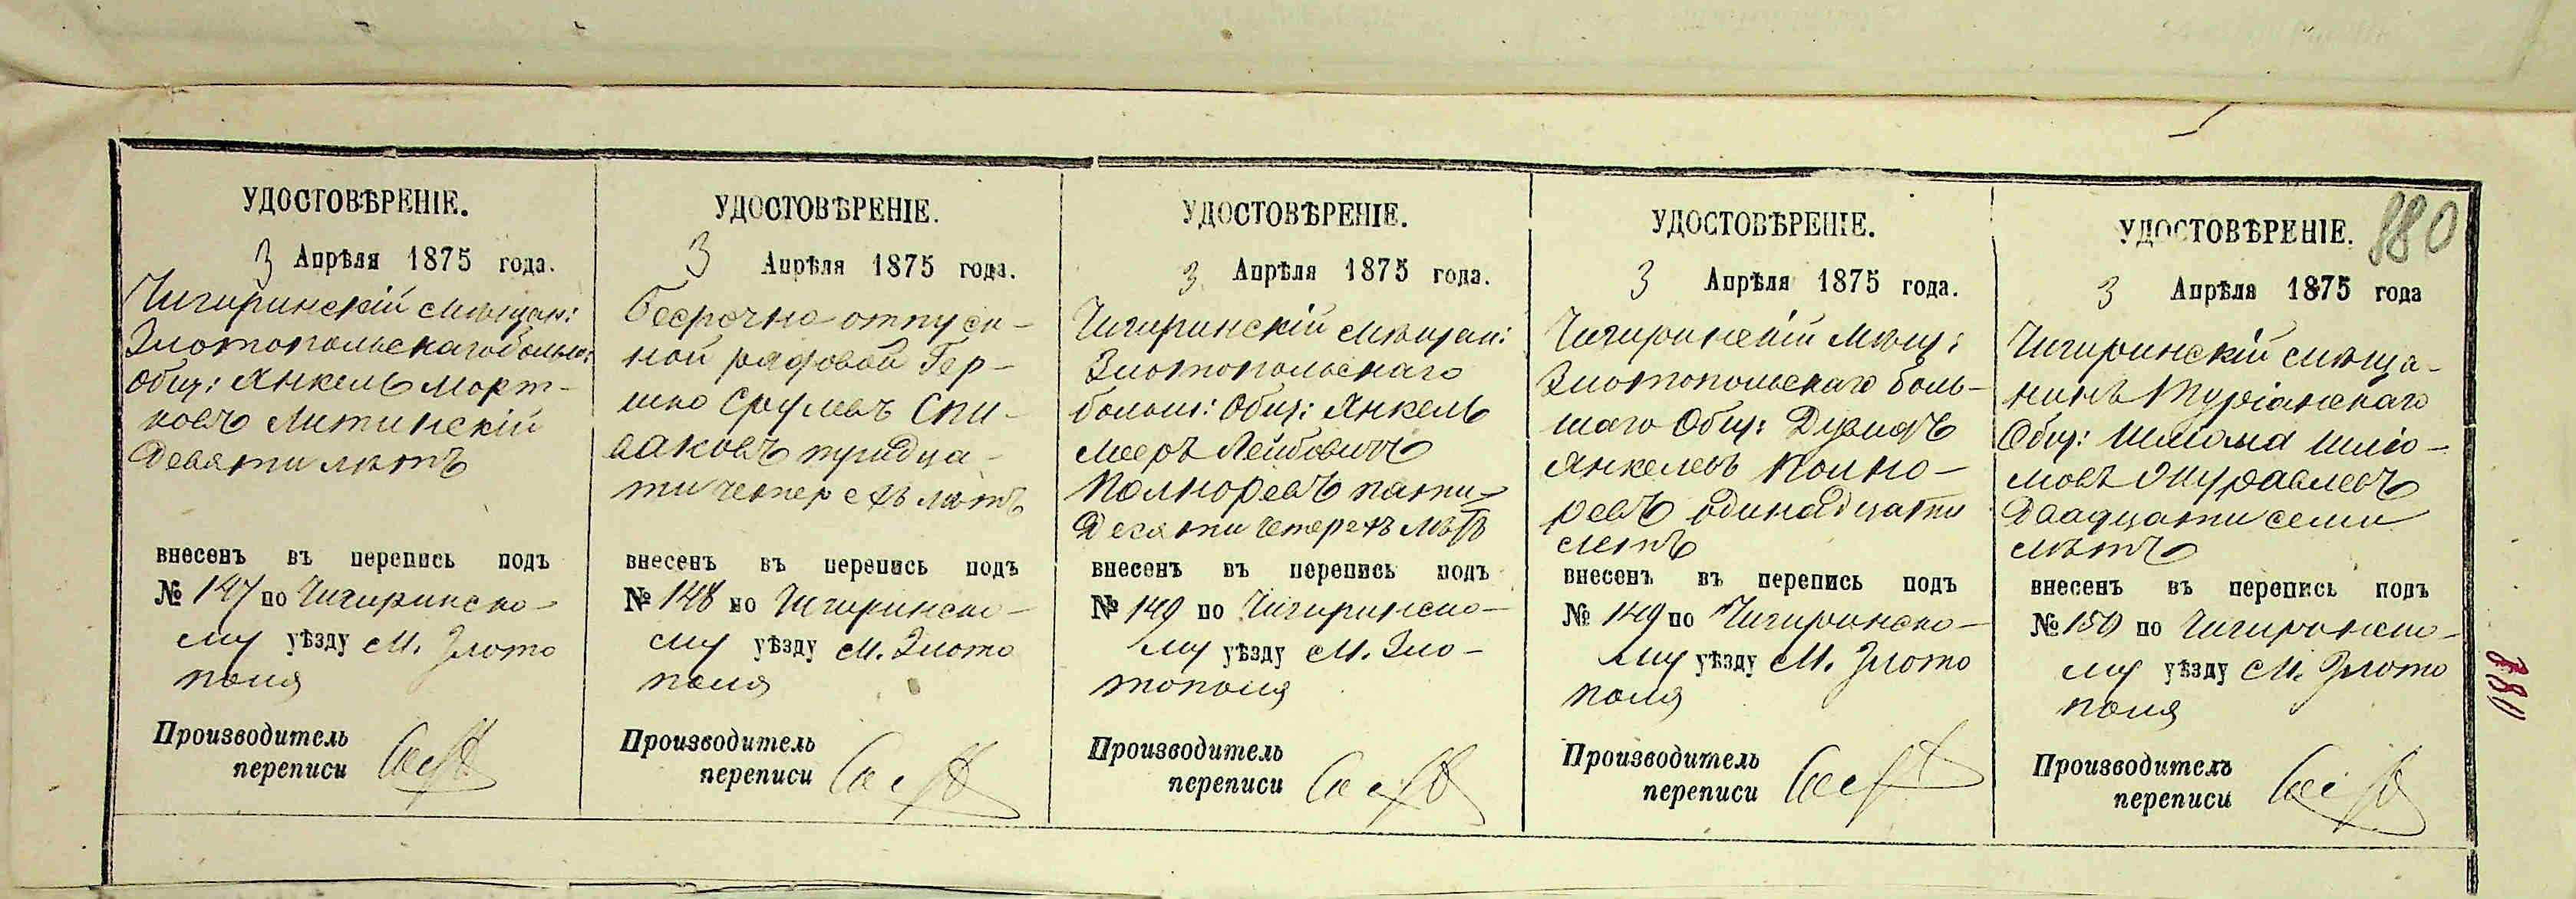 880
УДОСТОВѢРЕНІЕ.
3 Апрѣля 1875 года.
Чигиринскій мѣщан:
Златопольскаго больш:
Общ: Янкель Морт-
ковъ Литинскій
Девяти лѣтъ
внесенъ въ перепись подъ
№ 147 по Чигиринско-
му уѣзду М. Злото
поля
Производитель
переписи
УДОСТОВѢРЕНІЕ.
3 Апрѣля 1875 года.
Бесрочно отпуск-
ной рядовой Гер-
шко Срулевъ Спи-
ваковъ тридца-
ти четырехъ лѣтъ
внесенъ въ перепись подъ
№ 148 по Чигиринско-
му уѣзду М. Злото
поля
Производитель
переписи
УДОСТОВѢРЕНІЕ.
3 Апрѣля 1875 года.
Чигиринскій мѣщан:
Злотопольскаго
больш: Общ: Янкель
Мееръ Лейбовичъ
Полноревъ пяти-
Десяти четырехъ лѣтъ
внесенъ въ перепись подъ
№ 149 по Чигиринско-
му уѣзду М. Зло-
тополя
Производитель
переписи
УДОСТОВѢРЕНІЕ.
3 Апрѣля 1875 года.
Чигиринскій мѣщ:
Злотопольскаго боль-
шаго Общ:
Янкелевъ Полно-
ревъ одинадцати
летъ
внесенъ въ перепись подъ
№ 149 по Чигиринско-
му уѣзду М. Злото
поля
Производитель
переписи
УДОСТОВѢРЕНІЕ.
3 Апрѣля 1875 года
Чигиринскій мѣща-
нинъ Туріанскаго
Общ: Шлома Шліо-
мовъ Журавлевъ
Двадцати семи
лѣтъ
внесенъ въ перепись подъ
№ 150 по Чигиринско-
му уѣзду М. Злото
поля
Производитель
переписи
780